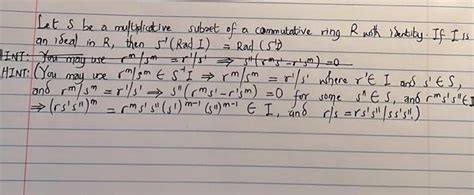 Let S be a multiplicative subset of a commutative ring R with identity. If I is
an ideal in R, then S⁻¹(Rad I) = Rad (S⁻¹I)
HINT: You may use rᵐ/sᵐ = r'/s' ⇒ s''(rᵐs' - r'sᵐ) = 0
HINT: (You may use rᵐ/sᵐ ∈ S⁻¹I ⇒ rᵐ/sᵐ = r'/s' where r' ∈ I and s' ∈ S,
and rᵐ/sᵐ = r'/s' ⇒ s''(rᵐs' - r'sᵐ) = 0 for some s'' ∈ S, and rᵐs's'' ∈ I
⇒ (rs's'')ᵐ = rᵐs's''(s')ᵐ⁻¹(s'')ᵐ⁻¹ ∈ I, and r/s = rs's''/ss's''.)